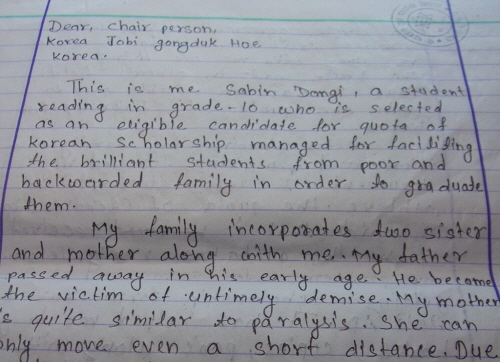 Dear, chair person,
Korea Jobi gongduk Hoe
Korea.
This is me Sabin Dangi, a student
reading in grade-10 who is selected
as an eligible candidate for quota of
korean scholarship managed for faciliting
the brilliant students from poor and
backwarded family in order to graduate
them.
My family incorporates two sister
and mother along with me. My father
passed away in his early age. He become
the victim of untimely demise. My mother
is quite similar to paralysis. She can
only move even a short distance. Due